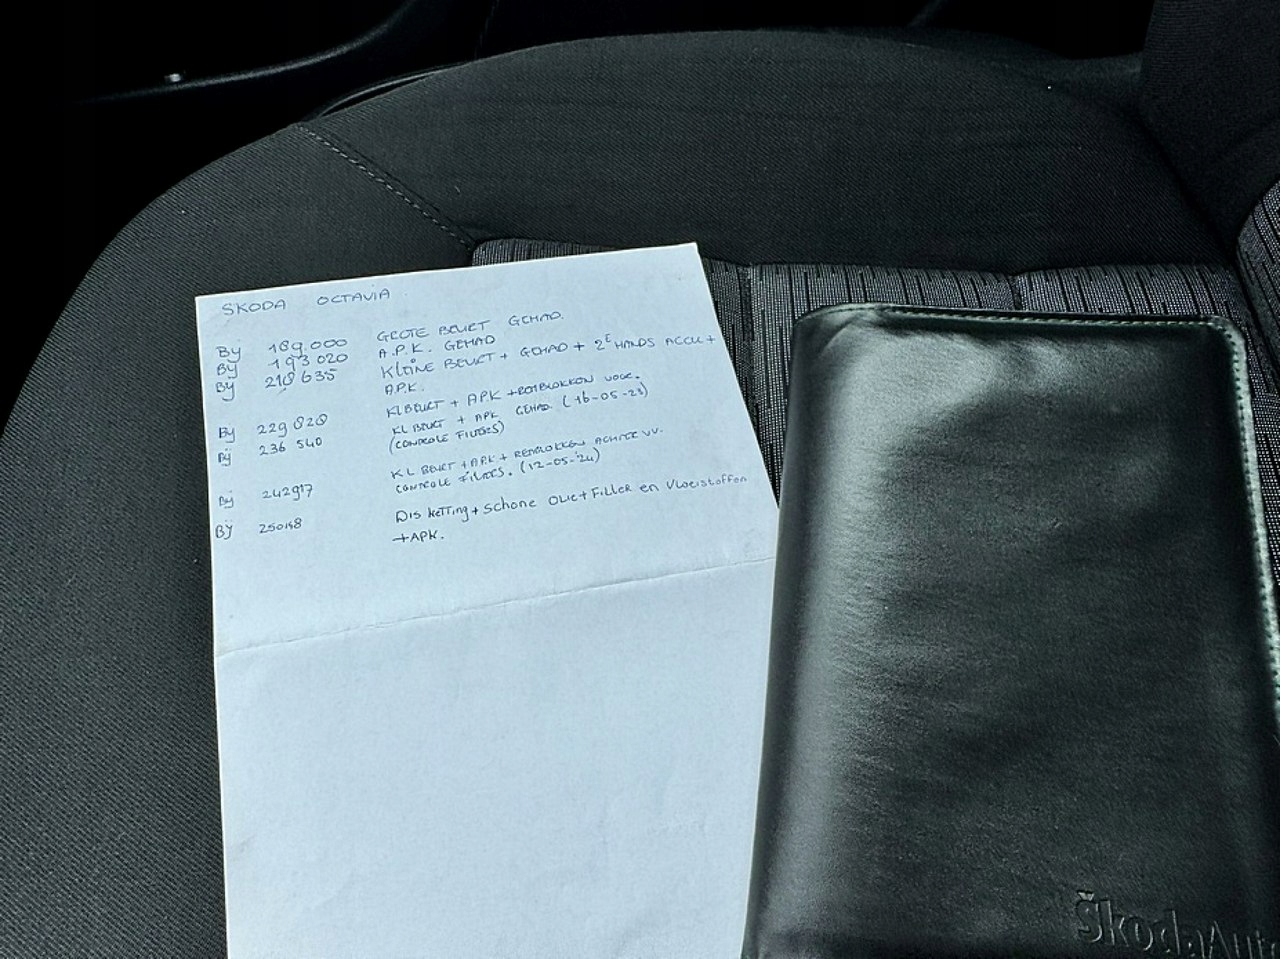 SKODA OCTAVIA
Bÿ 189.000 GROTE BEURT GEHAD.
Bÿ 193 020 A.P.K. GEHAD
Bÿ 218 635 KLEINE BEURT + GEHAD + 2E HANDS ACCU +
A.P.K.
Bÿ 229 828 KL BEURT + APK + REMBLOKKEN VOOR.
Bÿ 236 540 KL BEURT + APK GEHAD. (16-05-23)
(CONTROLE FILTERS)
Bÿ 242917 KL BEURT + APK + REMBLOKKEN ACHTER VV.
CONTROLE FILTERS. (12-05-'24)
Bÿ 250148 Dis ketting + schone olie + Filler en Vloeistoffen
+ APK.
ŠkodaAuto